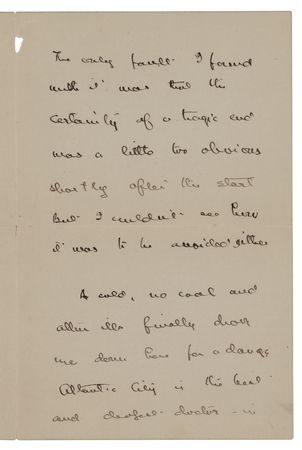 The only fault I found
with it was that the
certainty of a tragic end
was a little too obvious
shortly after the start
But I couldn't see how
it was to be avoided either
A cold, no coal and
other ills finally drove
me down here for a change
Atlantic City is the best
and cheapest doctor - is